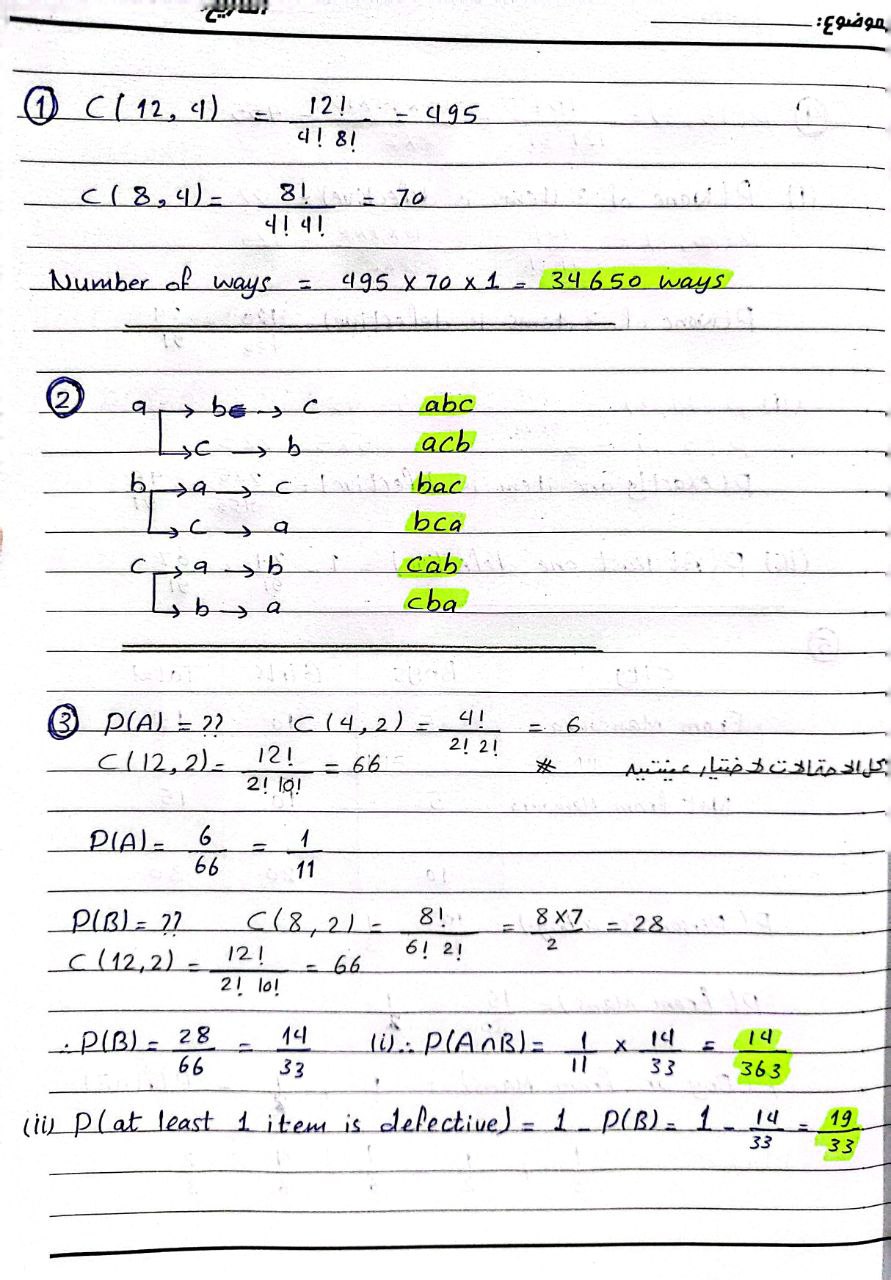 التاريخ:
موضوع:
① C(12,4) = 12!/4! 8! = 495
C(8,4) = 8!/4! 4! = 70
Number of ways = 495 × 70 × 1 = 34650 ways
② a → b → c abc
→ c → b acb
b → a → c bac
→ c → a bca
c → a → b cab
→ b → a cba
③ P(A) = ?? C(4,2) = 4!/2! 2! = 6
C(12,2) = 12!/2! 10! = 66 * كل الاحتمالات لاختيار عينتين
P(A) = 6/66 = 1/11
P(B) = ?? C(8,2) = 8!/6! 2! = 8×7/2 = 28
C(12,2) = 12!/2! 10! = 66
∴ P(B) = 28/66 = 14/33 (i) ∴ P(A∩B) = 1/11 × 14/33 = 14/363
(ii) P(at least 1 item is defective) = 1 - P(B) = 1 - 14/33 = 19/33